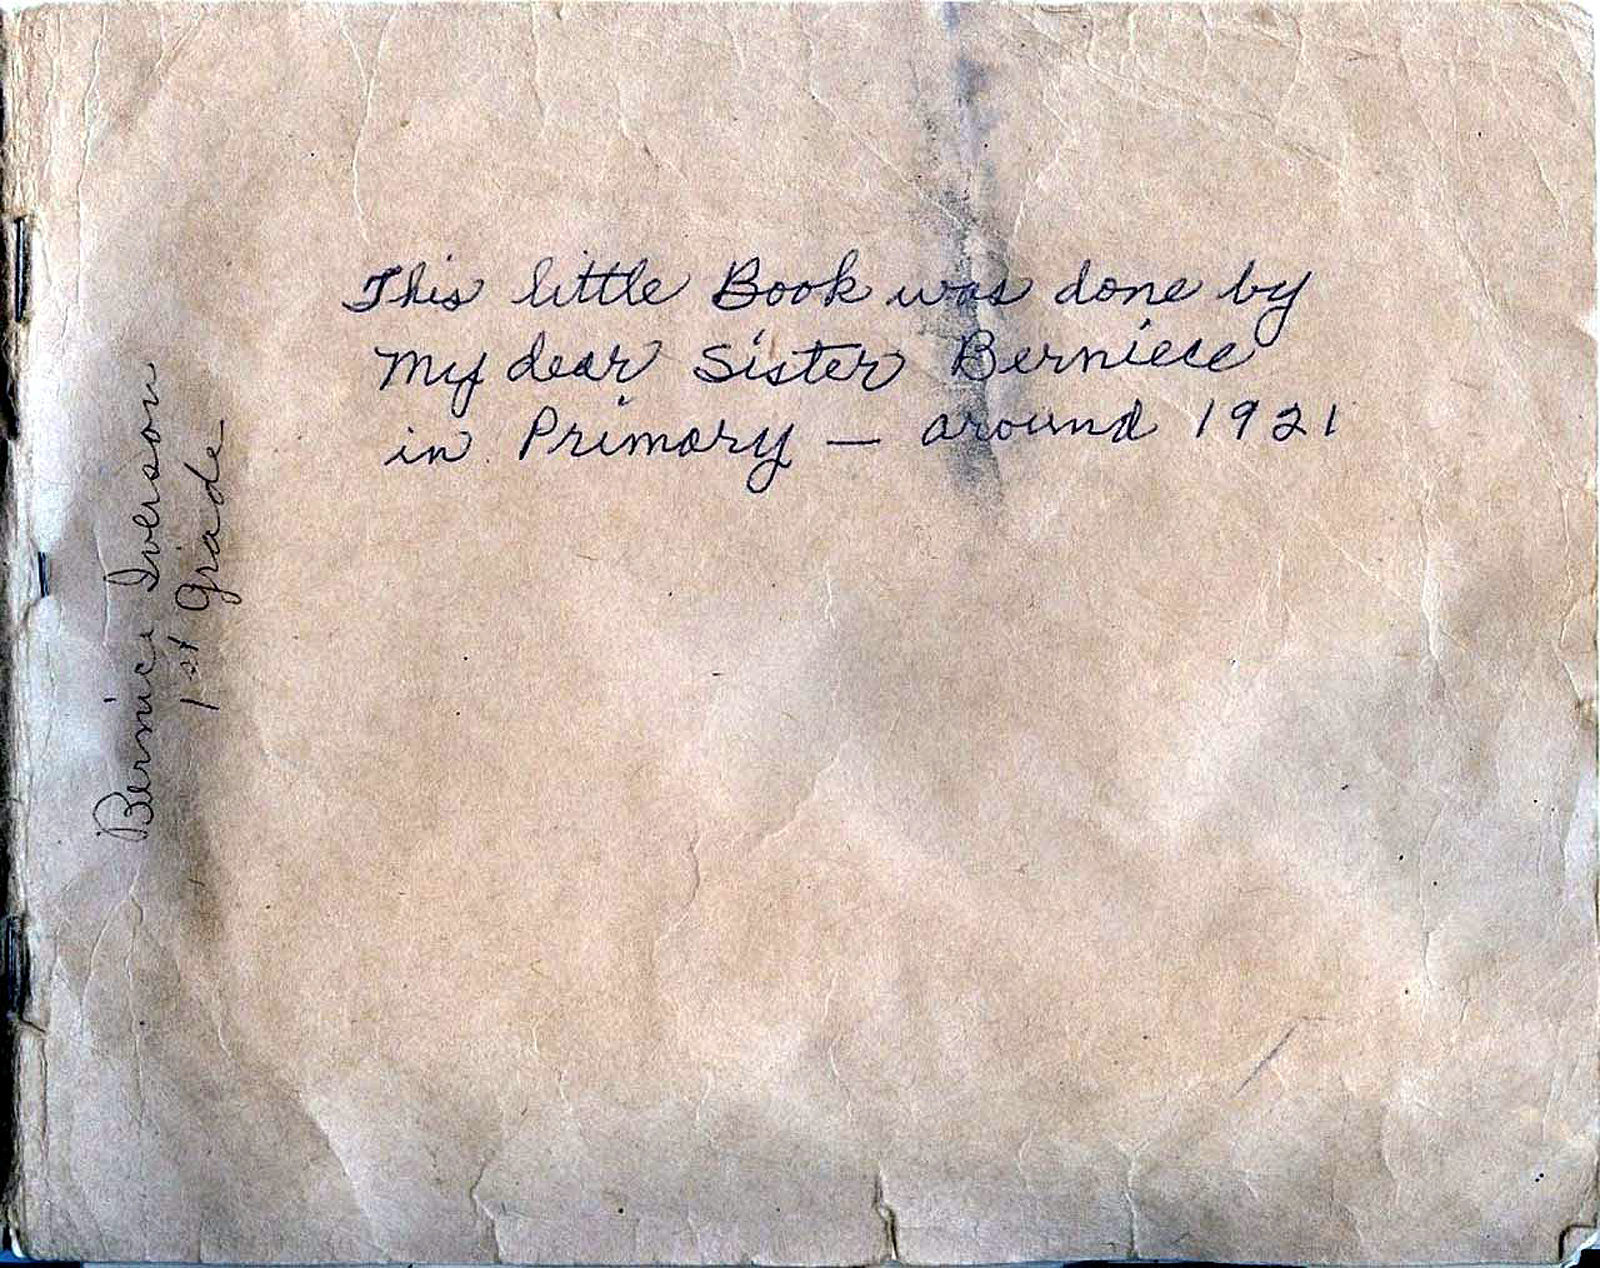 This little Book was done by
My dear Sister Berniece
in Primary — around 1921
Bernice Iverson
1st Grade